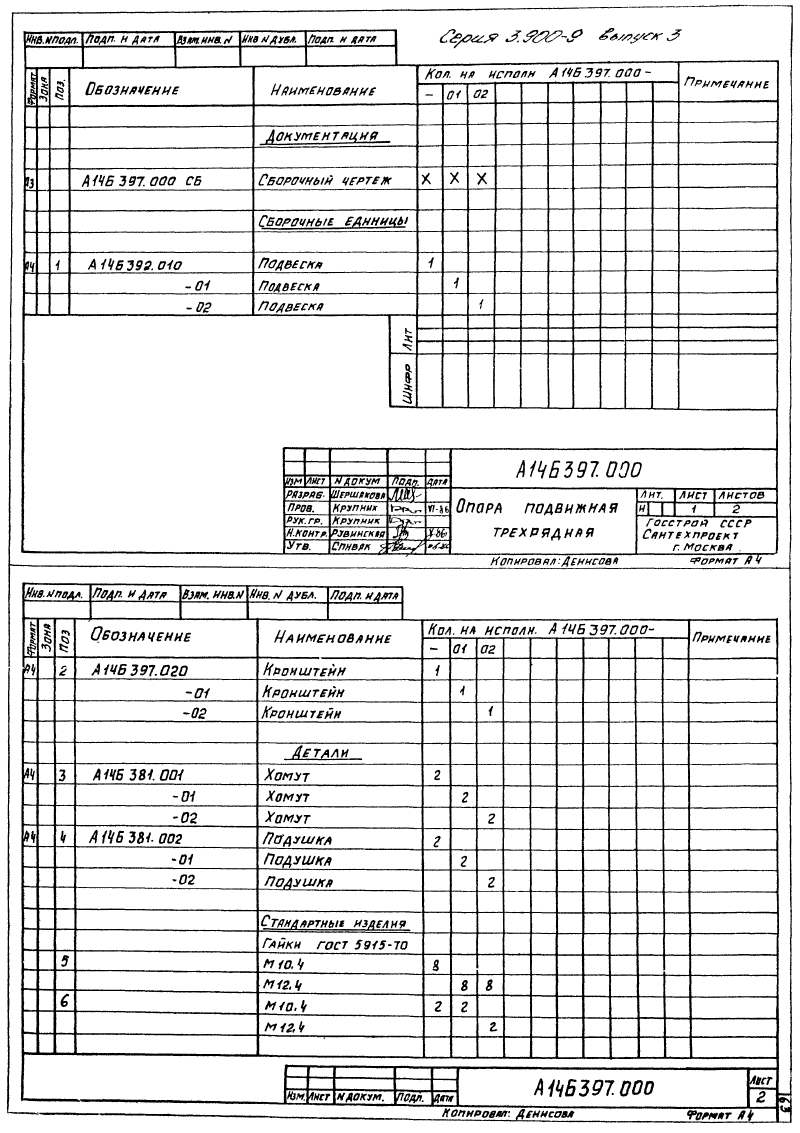 Серия 3.900-9 выпуск 3
Инв. N подл. Подп. и дата Взам. инв. N Инв N дубл. Подп. и дата
Формат Зона Поз. Обозначение Наименование Кол. на исполн А14Б397.000- Примечание
- 01 02
Документация
А3 А14Б397.000 СБ Сборочный чертеж X X X
Сборочные единицы
А4 1 А14Б392.010 Подвеска 1
-01 Подвеска 1
-02 Подвеска 1
Лит
Шифр
А14Б397.000
Изм Лист N докум Подп. Дата
Разраб. Шершакова
Пров. Крупник VI-86
Рук.гр. Крупник
Н.контр. Рувинская X-86
Утв. Спивак
Опора подвижная
трехрядная
Лит. Лист Листов
И 1 2
Госстрой СССР
Сантехпроект
г. Москва
Копировал: Денисова Формат А4
Инв. N подл. Подп. и дата Взам. инв. N Инв. N дубл. Подп. и дата
Формат Зона Поз Обозначение Наименование Кол. на исполн. А14Б397.000- Примечание
- 01 02
А4 2 А14Б397.020 Кронштейн 1
-01 Кронштейн 1
-02 Кронштейн 1
Детали
А4 3 А14Б381.001 Хомут 2
-01 Хомут 2
-02 Хомут 2
А4 4 А14Б381.002 Подушка 2
-01 Подушка 2
-02 Подушка 2
Стандартные изделия
Гайки ГОСТ 5915-70
5 М10.4 8
М12.4 8 8
6 М10.4 2 2
М12.4 2
Изм. Лист N докум. Подп. Дата
А14Б397.000
Лист
2
Копировал: Денисова Формат А4
63